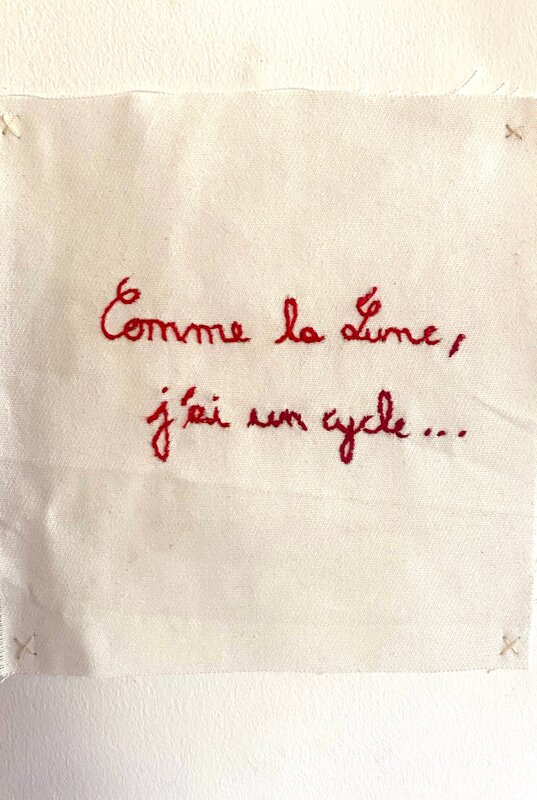 Comme la Lune,
j'ai un cycle...